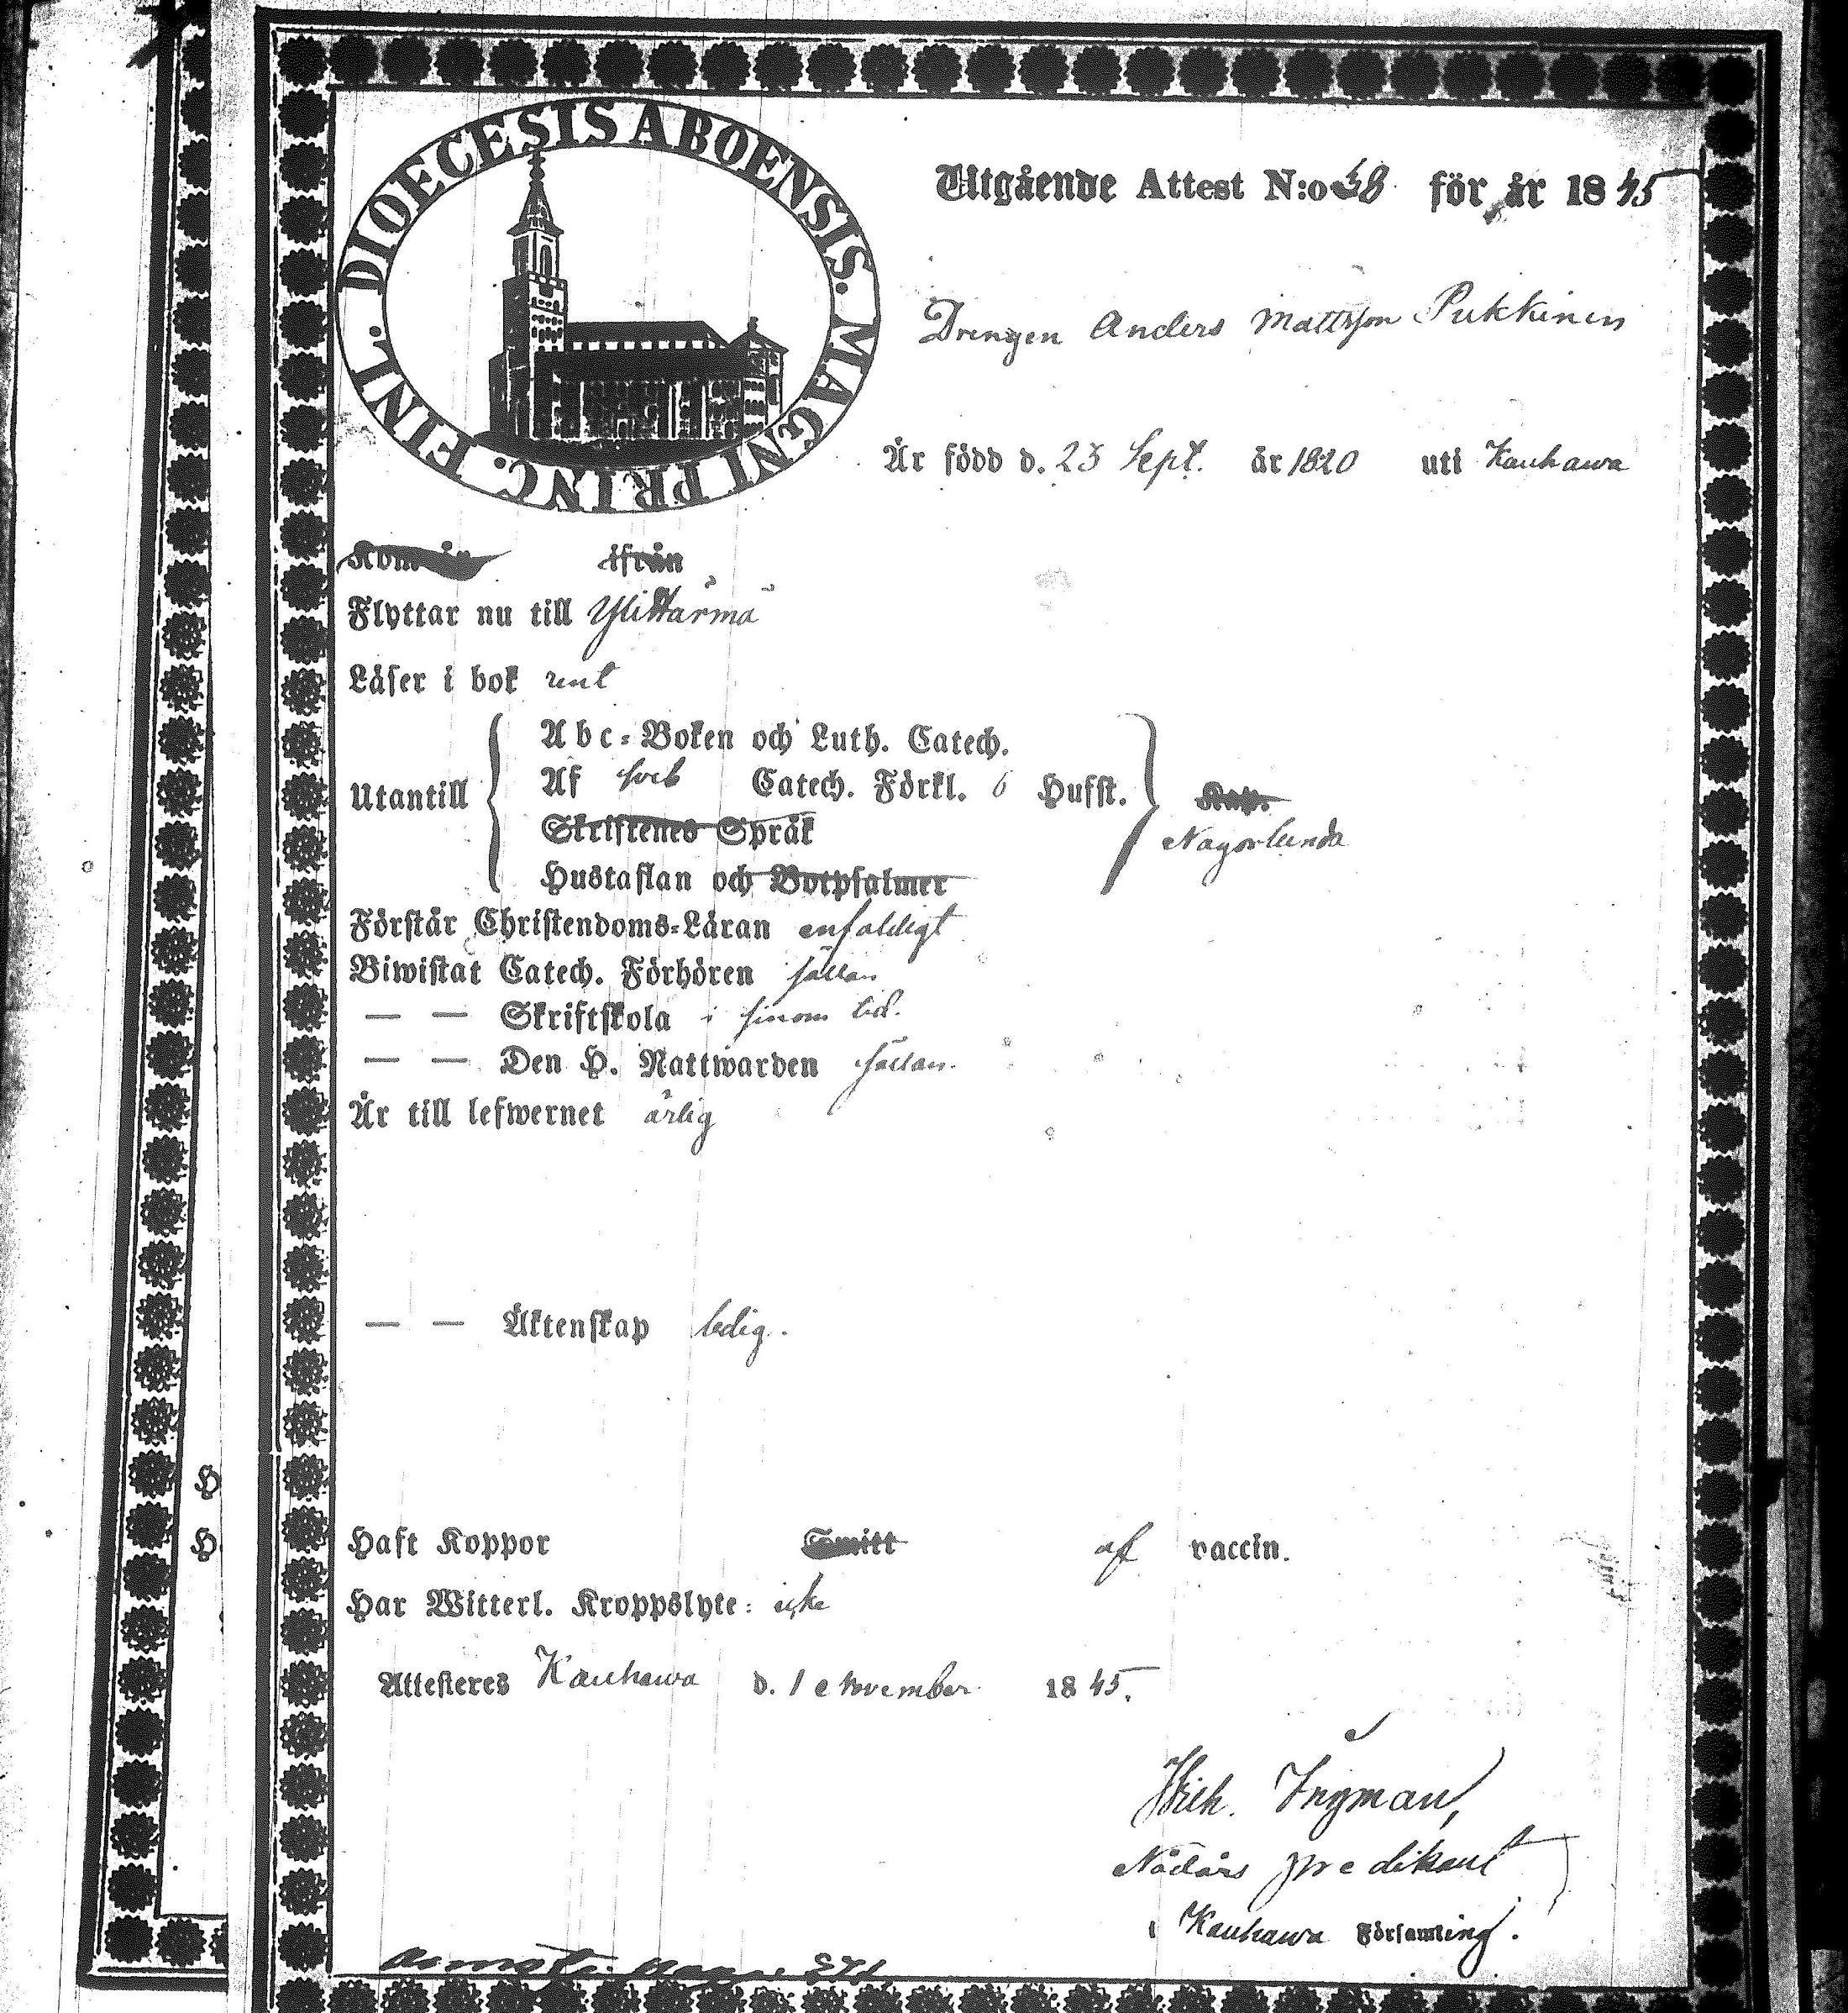 DIOECESIS ABOENSIS. MAGNI PRINC. FINL.
Utgående Attest N:o 38 för år 1845
Drengen Anders Mattsson Pukkinen
Är född d. 23 Sept. år 1820 uti Kauhawa
Kom år ifrån
Flyttar nu till Ylihärmä
Läser i bok rent
Utantill
Abc-Boken och Luth. Catech.
Af Catech. Förkl. 6 Hufst.
Kap.
Skriftenes Språk
Någorlunda
Hustaflan och Botpsalmer
Förstår Christendoms-Läran enfaldigt
Biwistat Catech. Förhören sällan
— — Skriftskola i sinom tid.
— — Den H. Nattwarden sällan.
Är till lefwernet ärlig
— — Äktenskap ledig.
H
Haft Koppor Smitt af vaccin.
H
Har Witterl. Kroppslyte: icke
Attesteres Kauhawa d. 1 November 1845.
Wilh. Ingman,
Nådårs predikant
i Kauhawa Församling.